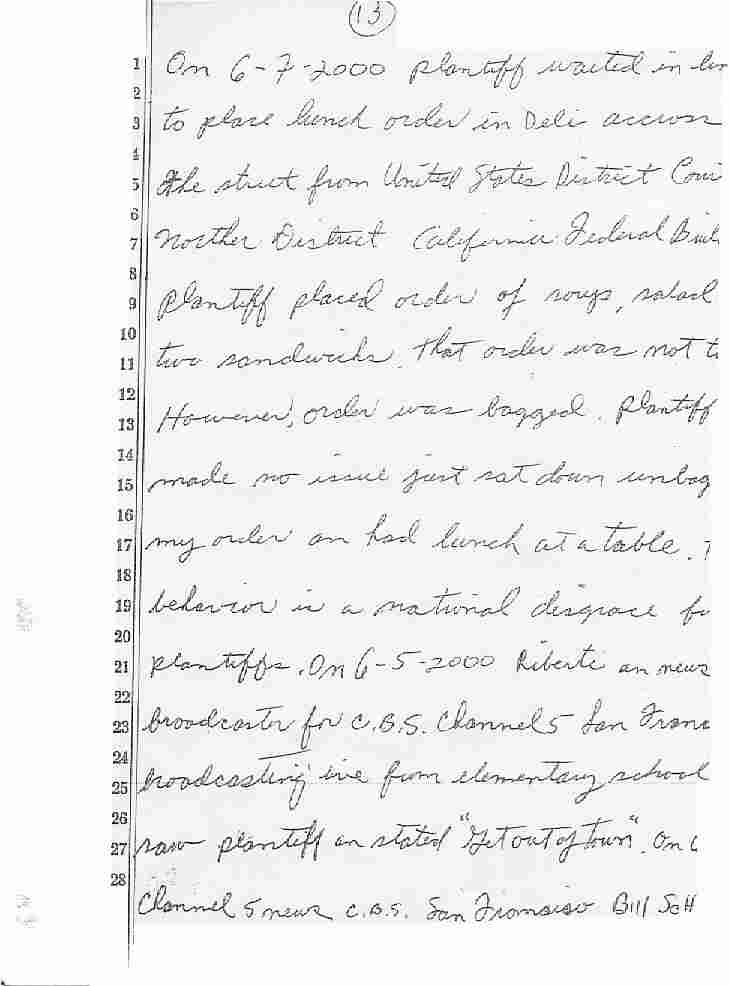 13
1 On 6-7-2000 plantiff waited in lin
2
3 to place lunch order in Deli accross
4
5 the street from United States District Cour
6
7 Norther District California Federal Buil
8
9 Plantiff placed order of soup, salad
10
11 two sandwichs. that order was not t
12
13 However, order was bagged. Plantiff
14
15 made no issue just sat down unbag
16
17 my order an had lunch at a table. T
18
19 behavior is a national disgrace fo
20
21 plantiffs. On 6-5-2000 Riberti an news
22
23 broadcaster for C.B.S. Channel 5 San Franc
24
25 broadcasting live from elementary school
26
27 saw plantiff an stated "Get out of town". On
28
Channel 5 news C.B.S. San Fransciso Bill ScH